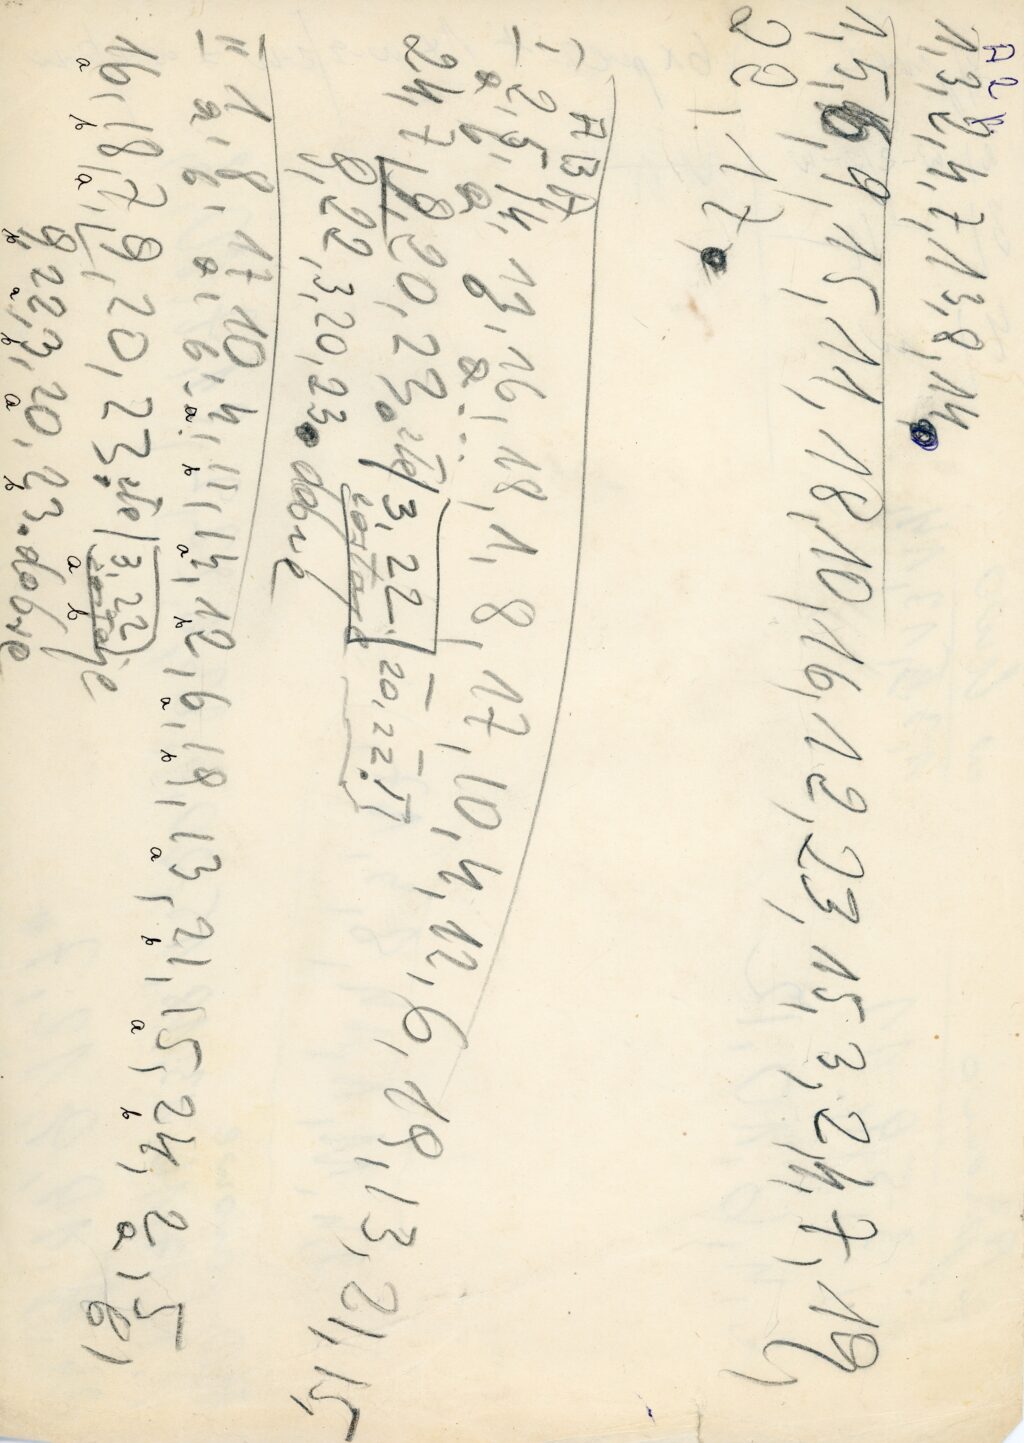 A 2 b
1, 3, 2, 4, 7, 13, 8, 14.
1, 5, 6, 9, 15, 11, 18, 10, 16, 12, 23, 15, 3, 24, 7, 19,
22, 17.
A B A
I 2, 5, 14, 13, 16, 18, 1, 8, 17, 10, 4, 12, 6, 19, 13, 21, 15,
a b a a
24, 7, 9, 20, 23. źle 3, 22. 20, 22.
zostaje
9, 22, 3, 20, 23. dobrze
II 1, 8, 17, 10, 4, 11, 14, 12, 6, 19, 13, 21, 15, 24, 2, 5,
a b a b a b a b a b a b a b a b
16, 18, 7, 9, 20, 23. źle 3, 22
a b a zostaje
9, 22, 3, 20, 23. dobrze
b a b a b a b